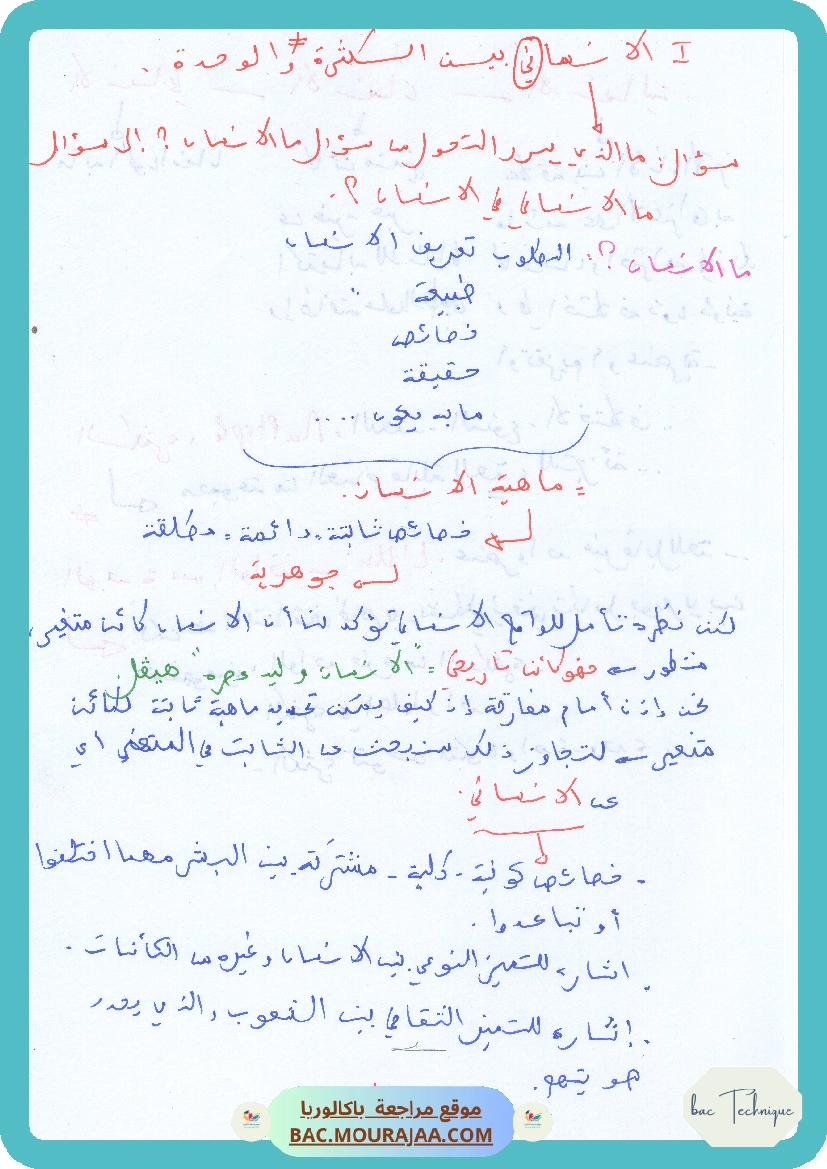 I الإنساني بين الكثرة ≠ والوحدة .
سؤال : ما الذي يبرر التحول من سؤال ما الإنسان ؟ إلى سؤال
ما الإنساني في الإنسان ؟.
ما الإنسان ؟: المطلوب تعريف الإنسان
طبيعة :
خصائص
حقيقة
ما به يكون ....
= ماهية الإنسان .
خصائص ثابتة ، دائمة ، مطلقة
جوهرية
لكن نظرة تأمل للواقع الإنساني تؤكد لنا أن الإنسان كائن متغير،
متطور فهو كائن تاريخي = "الإنسان وليد عصره" هيقل
نحن إذن أمام مفارقة إذ كيف يمكن تحديد ماهية ثابتة لكائن
متغير لتجاوز ذلك سنبحث عن الثابت في المتغير أي
عن الإنساني .
- خصائص كونية - كلية - مشتركة بين البشر مهما اختلفوا
أو تباعدوا .
. إشارة للتميز النوعي بين الإنسان وغيره من الكائنات .
. إشارة للتميز الثقافي بين الشعوب والذي
هويتهم .
bac Technique
موقع مراجعة باكالوريا
BAC.MOURAJAA.COM